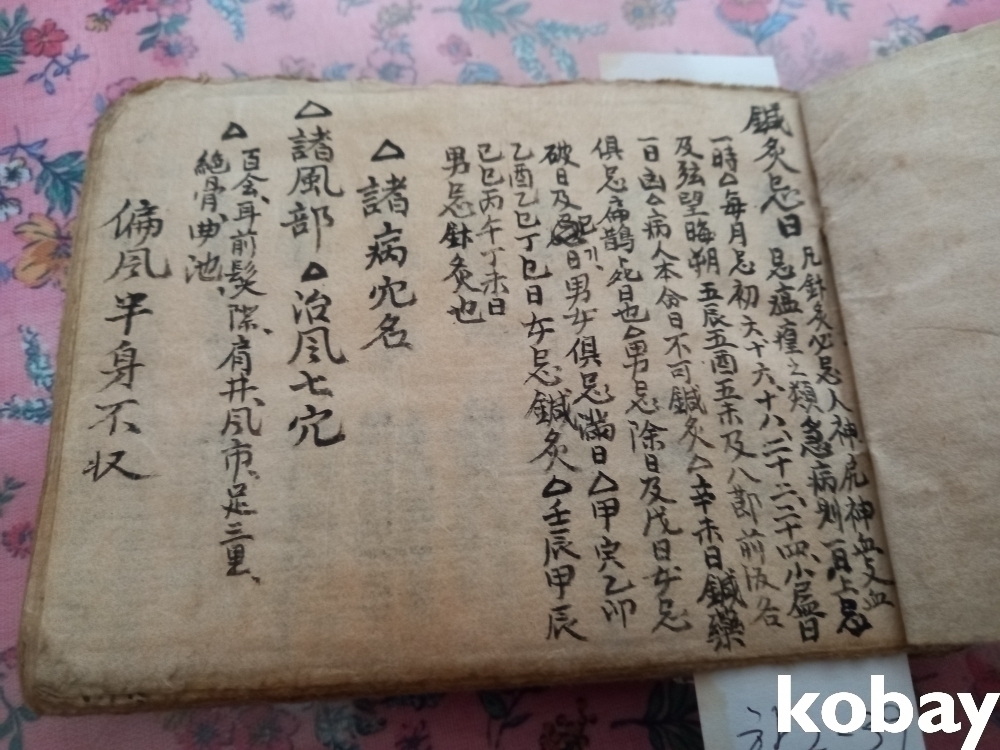 鍼灸忌日
凡針灸必忌人神尻神血支血
忌瘟㾮之類急病則一日上忌
一時△每月忌初六十六、十八、二十二、二十四、小盡日
及弦望晦朔五辰五酉五未及八節前後各
一日凶△病人本命日不可鍼灸△辛未日鍼藥
俱忌扁鵲死日也△男忌除日及戊日女忌
破日及己日男女俱忌滿日△甲寅乙卯
乙酉乙巳丁巳日女忌鍼灸△壬辰甲辰
己巳丙午丁未日
男忌針灸也
△諸病穴名
△諸風部▲治風七穴
▲百会、耳前髮際、肩井、風市、足三里、
絶骨、曲池、
偏風半身不収
kobay